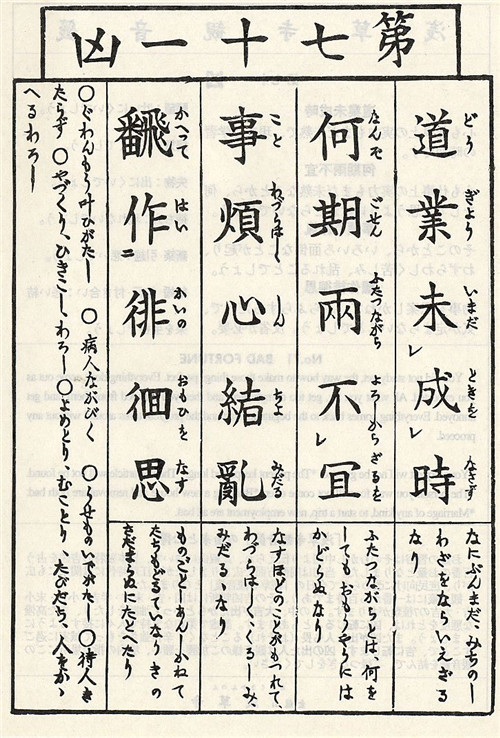 第七十一凶
道業未成時
どう ぎよう いまだ ときを なさず
なにぶんまだ、みちのし
わざをならいえざる
なり
何期兩不宜
なんぞ ごせん ふたつながら よろしからざるを
ふたつながらとは、何を
してもおもうやうには
かどらぬなり
事煩心緒亂
こと わづらはし しん ちよ みだる
なすほどのことがもつれて、
わづらはしくくるしみ、
みだるゝなり
飜作徘徊思
かへつて はい かいの おもひを なす
ものごとにあとへかねて
たちもどるていなりきの
さだまらぬにたとへたり
○ぐわんもう叶ひがたし ○病人ながびく ○うせものいでがたし ○待人き
たらず ○やづくり、ひきこし、わろし ○よめとり、むことり、たびだち、人をかゝ
へるわろし